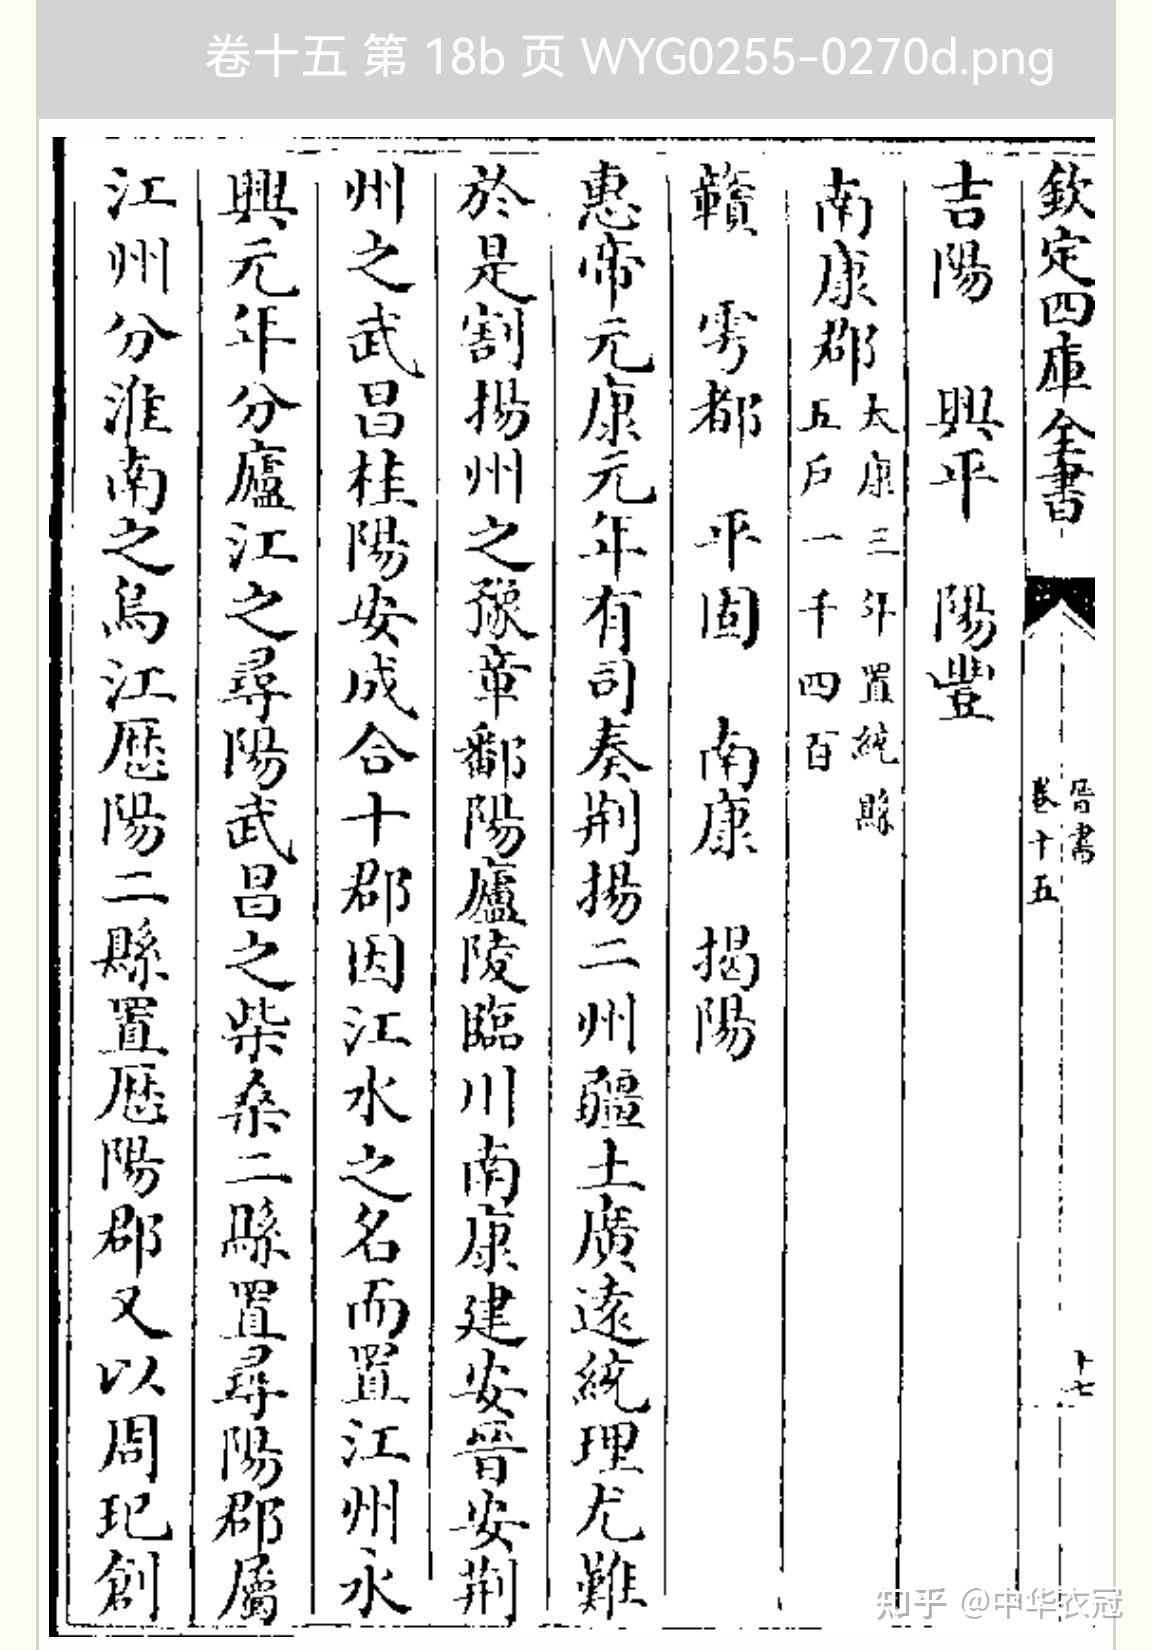 卷十五 第 18b 页 WYG0255-0270d.png
欽定四庫全書
晉書
卷十五
十七
吉陽 興平 陽豐
南康郡 太康三年置統縣
五戶一千四百
贛 雩都 平固 南康 揭陽
惠帝元康元年有司奏荆揚二州疆土廣遠統理尤難
於是割揚州之豫章鄱陽廬陵臨川南康建安晉安荆
州之武昌桂陽安成合十郡因江水之名而置江州永
興元年分廬江之尋陽武昌之柴桑二縣置尋陽郡屬
江州分淮南之烏江歷陽二縣置歷陽郡又以周玘創
知乎 @中华衣冠